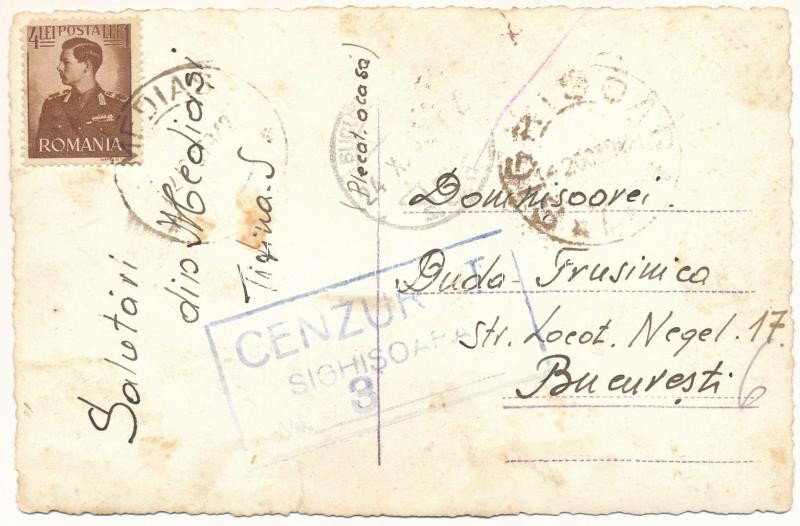 4 LEI POSTA LEI
ROMANIA
MEDIAS
Salutări
din Mediaș!
(Plecat. acasă)
24 X
SIGHISOARA
CENZURAT
SIGHISOARA
3
No.
Domnisoarei
Duda Frusinica
Str. Locot. Negel. 17.
București 6